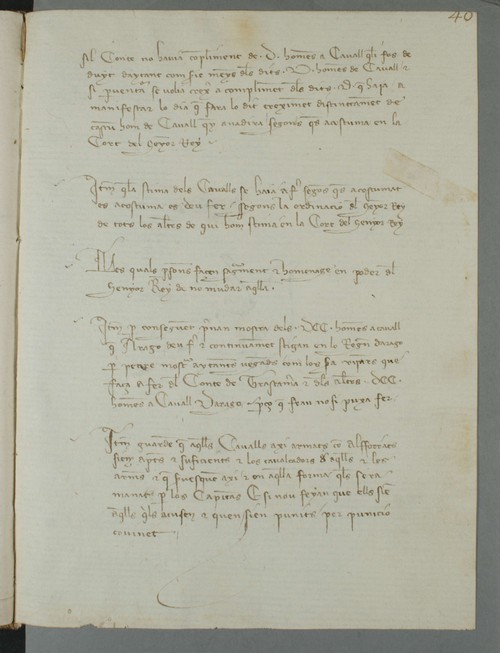 40
Si l Conte no havia compliment de .D. homens a Cavall qli fos de
duyt daytant com sie meyns dels dits .D. homens de Cavall e
si pervenia se volia creix a compliment dels dits .D. q haja a
manifestar lo dia q fara lo dit creximet distinctament de
cascu hom de Cavall qy anadira segons qs acostuma en la
Cort del Senyor Rey
Itm qla stima dels Cavalls se haia a fer segos qs acostumat
es acostuma es deu fer e segons la ordinacio dl senyor Rey
de tots los altres de qui hom stima en la Cort del Senyor Rey
Les quals psones facen sagrament e homenage en poder dl
Senyor Rey de no mudar aqlla .
Itm p conseguent pnan mostra dels .DCC. homens a cavall
q Arago deu fer e continuament stigan en lo Regne darago
p penre mostra aytants vegades com los sia vijares que
faça a fer dl Conte de Trastamera e dls altres .DCC.
homens a Cavall Darago q frau nosi puxa fer
Itm guarden q aqlls Cavalls axi armats co alforrats
sien aptes e suficients e los cavalcadors daqlls e los
arnes e q fuesque axi e en aqlla forma qls sera
manat p los Capitans E si nou feyan que ells sie
aqlls qls acusen e quen sien punits per punicio
covinet